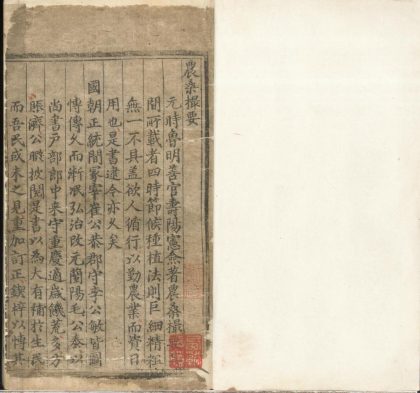 農桑撮要
元時魯明善官壽陽憲僉著農桑撮要
間所載者四時節候種植法則巨細精粗
無一不具盖欲人循行以勤農業而資日
用也是書迨今亦久矣
國朝正統間冢宰崔公恭郡守李公敏皆圖
博傳久而漸泯弘治改元蘭陽毛公泰以
尚書户部郎中来守重慶適歲饑荒多方
賑濟公暇披閱是書以為大有補於生民
而吾民或未之見重加訂正鋟梓以博其